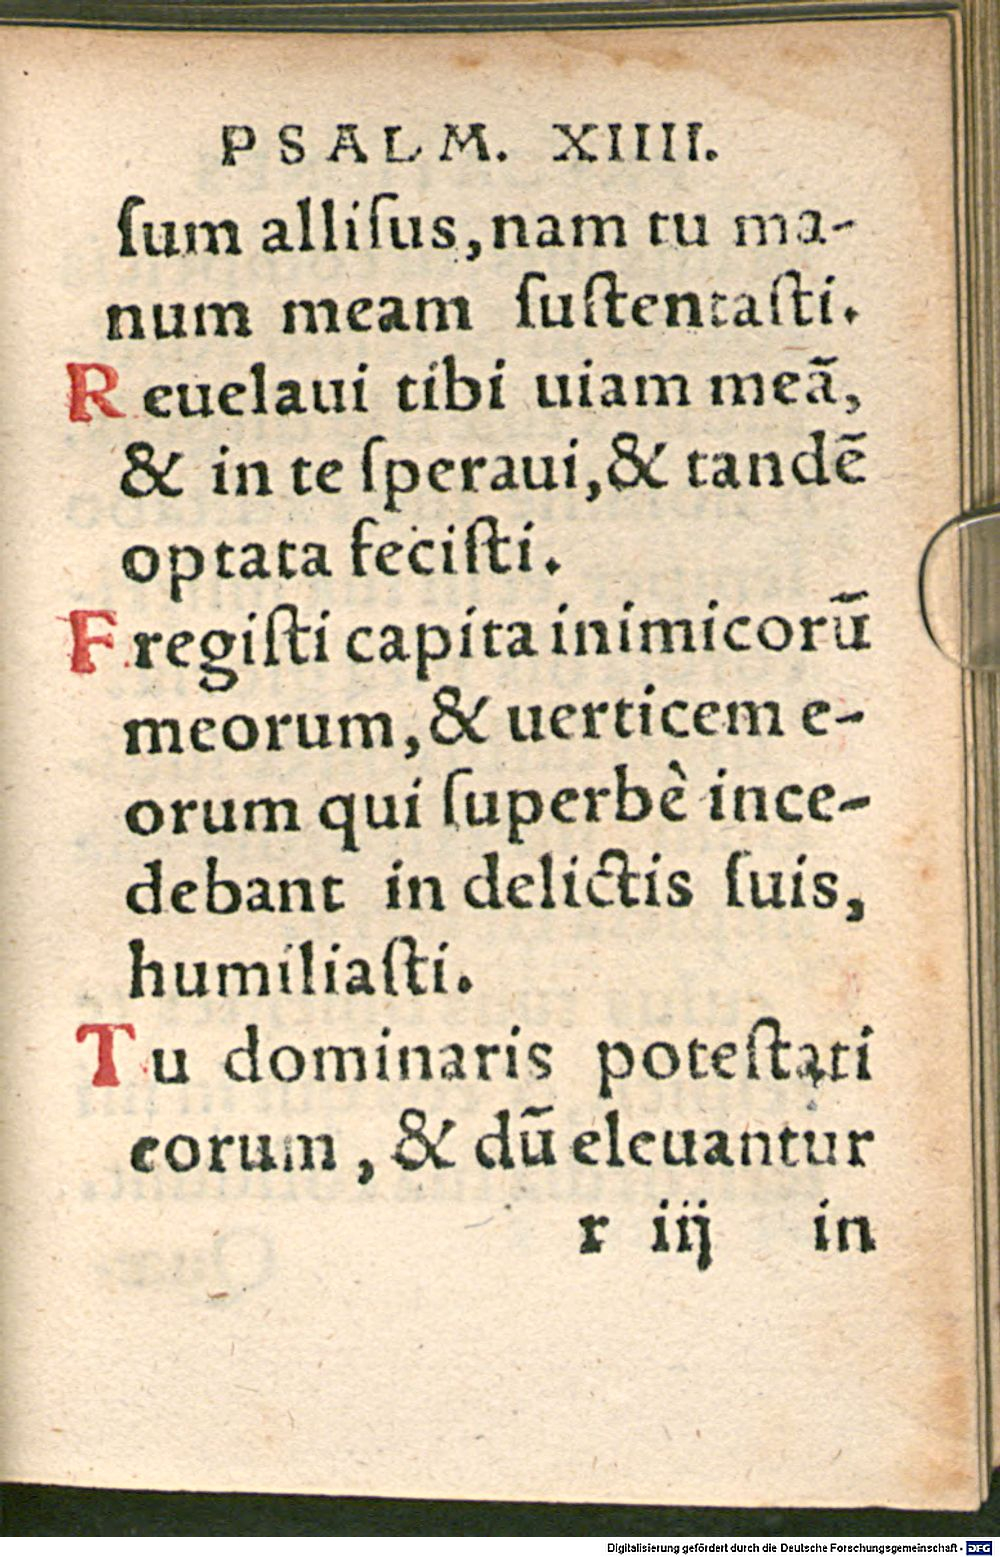 PSALM. XIIII.
ſum alliſus, nam tu ma-
num meam ſuſtentaſti.
Reuelaui tibi uiam meā,
& in te ſperaui, & tandē
optata feciſti.
Fregiſti capita inimicorū
meorum, & uerticem e-
orum qui ſuperbè ince-
debant in delictis ſuis,
humiliaſti.
Tu dominaris poteſtati
eorum, & dū eleuantur
r iij in
Digitalisierung gefördert durch die Deutsche Forschungsgemeinschaft - DFG